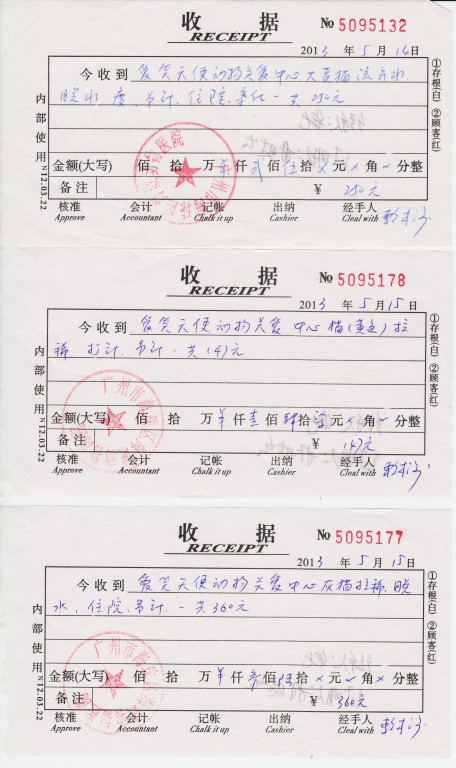 收 据
RECEIPT
№ 5095132
2013 年 5 月 14日
今收到 爱笑天使动物关爱中心大黄猫流口水
脱水 疹,吊针,住院 一共250元
金额(大写) 佰 拾 万 仟 贰 佰 伍 拾 × 元 × 角 × 分整
备注 ¥ 250元
核准 会计 记帐 出纳 经手人
Approve Accountant Chalk it up Cashier Cleal with
①存根(白) ②顾客(红)
内部使用 N12.03.22
收 据
RECEIPT
№ 5095178
2013 年 5 月 15日
今收到 爱笑天使动物关爱中心猫(黄色)拉
稀 打针 吊针 一共147元
金额(大写) 佰 拾 万 仟 壹 佰 肆 拾 元 × 角 × 分整
备注 ¥ 147元
核准 会计 记帐 出纳 经手人
Approve Accountant Chalk it up Cashier Cleal with
①存根(白) ②顾客(红)
内部使用 N12.03.22
广州市海珠区
收 据
RECEIPT
№ 5095177
2013 年 5 月 15日
今收到 爱笑天使动物关爱中心灰猫拉稀,脱
水,住院,吊针,一共360元
金额(大写) 佰 拾 万 仟 叁 佰 陆 拾 × 元 × 角 × 分整
备注 ¥ 360元
核准 会计 记帐 出纳 经手人
Approve Accountant Chalk it up Cashier Cleal with
①存根(白) ②顾客(红)
内部使用 N12.03.22
广州市海珠区